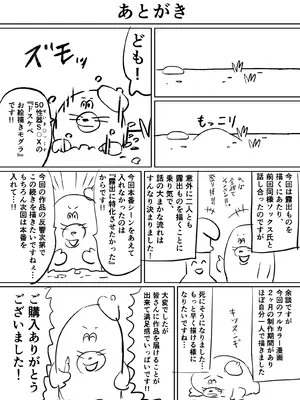 あとがき
もっこり
ズモッ
ども！
50性器S○Xの
『ドスケベ
お絵描きモグラ』
です!!
今回は露出ものを
描くにあたり、
前回同様ソックス氏と
話し合ったのですが
意外に二人とも
露出ものを描くことに
乗り気で
話の大まかな流れは
すんなり決まりました！
今回本番シーンをあえて
入れなかったのは
「露出に特化させたかった」
からです!!
今回の作品の反響次第で
この続きを描きたいですねぇ…
もちろん次回は本番を
入れて…!!
余談ですが
今回のフルカラー漫画
2ヶ月の制作期間があり
ほぼ自分一人で描きまして
キツメンキ
死にそうになりました…
もっと早く描ける様に
なりたいですね…
大変でしたが
皆さんに作品を届けることが
出来て満足感でいっぱいです!!
ご購入ありがとう
ございました！